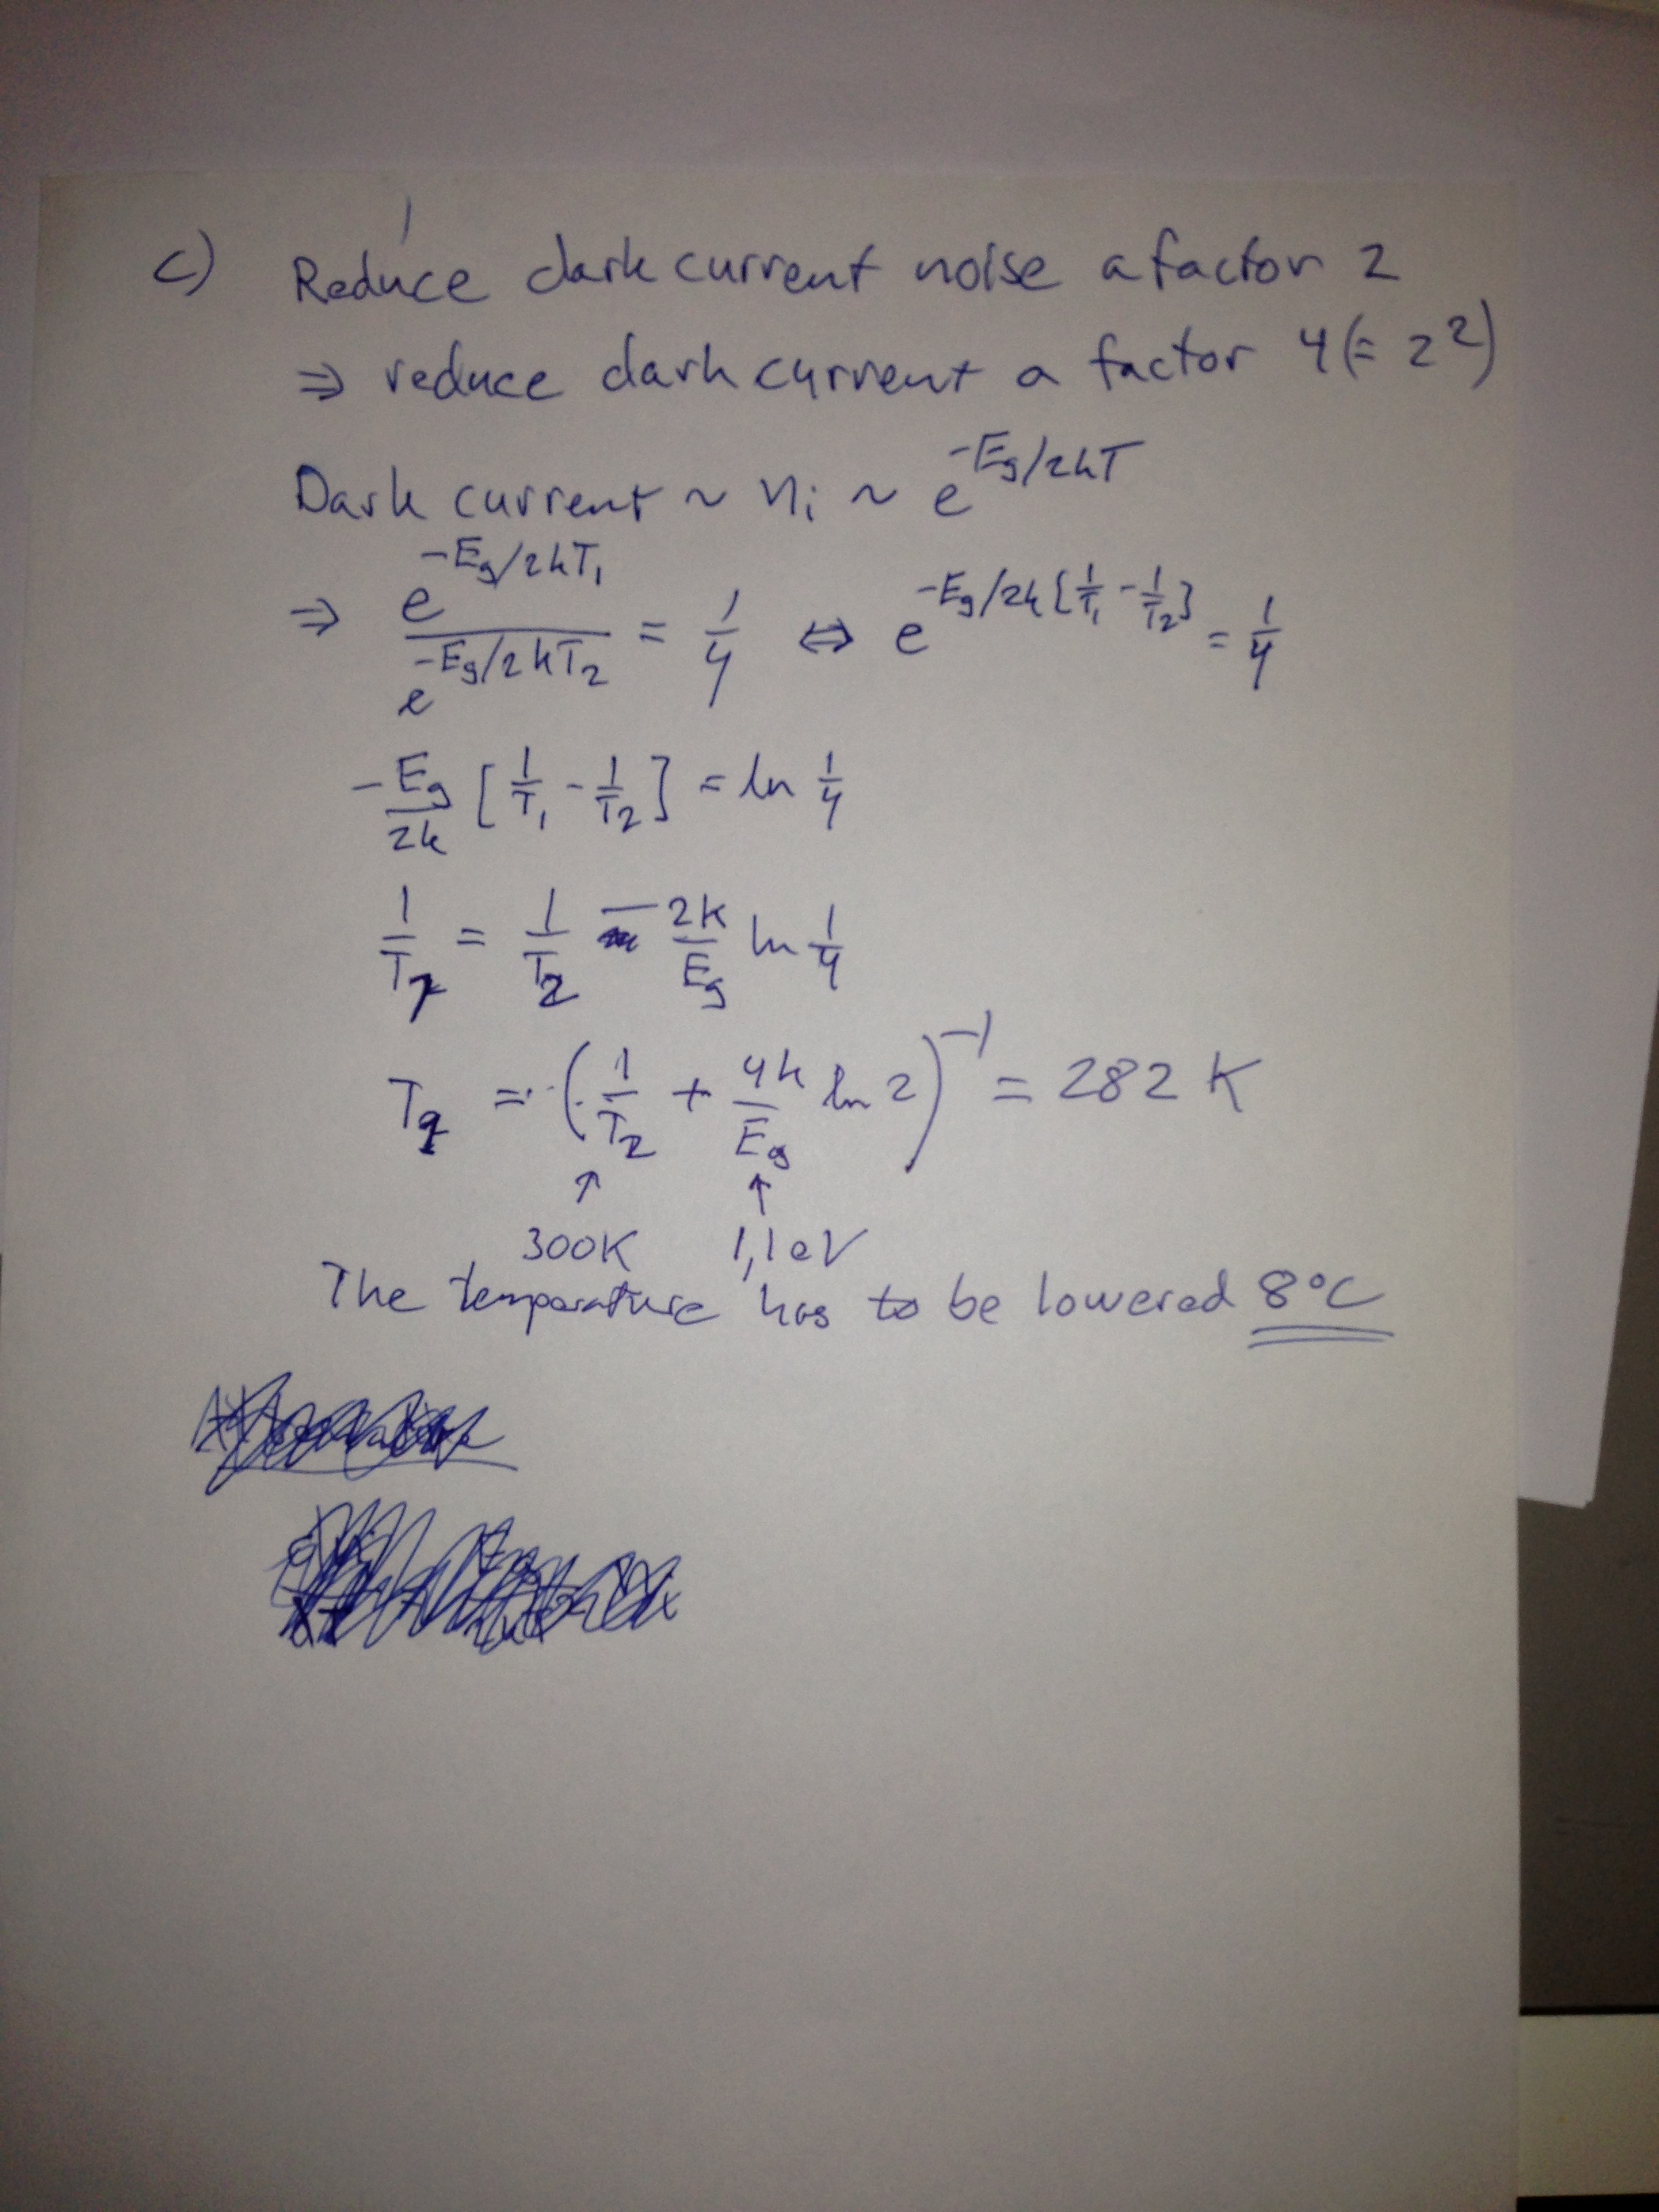 c) Reduce dark current noise a factor 2
⇒ reduce dark current a factor 4 (= 2²)
Dark current ~ nᵢ ~ e^(-Eg/2kT)
⇒ e^(-Eg/2kT₁) / e^(-Eg/2kT₂) = 1/4 ⇔ e^(-Eg/2k [1/T₁ - 1/T₂]) = 1/4
-Eg/2k [1/T₁ - 1/T₂] = ln 1/4
1/T₁ = 1/T₂ - 2k/Eg ln 1/4
T₁ = (1/T₂ + 4k/Eg ln 2)⁻¹ = 282 K
↑ ↑
300K 1,1 eV
The temperature has to be lowered 8°C